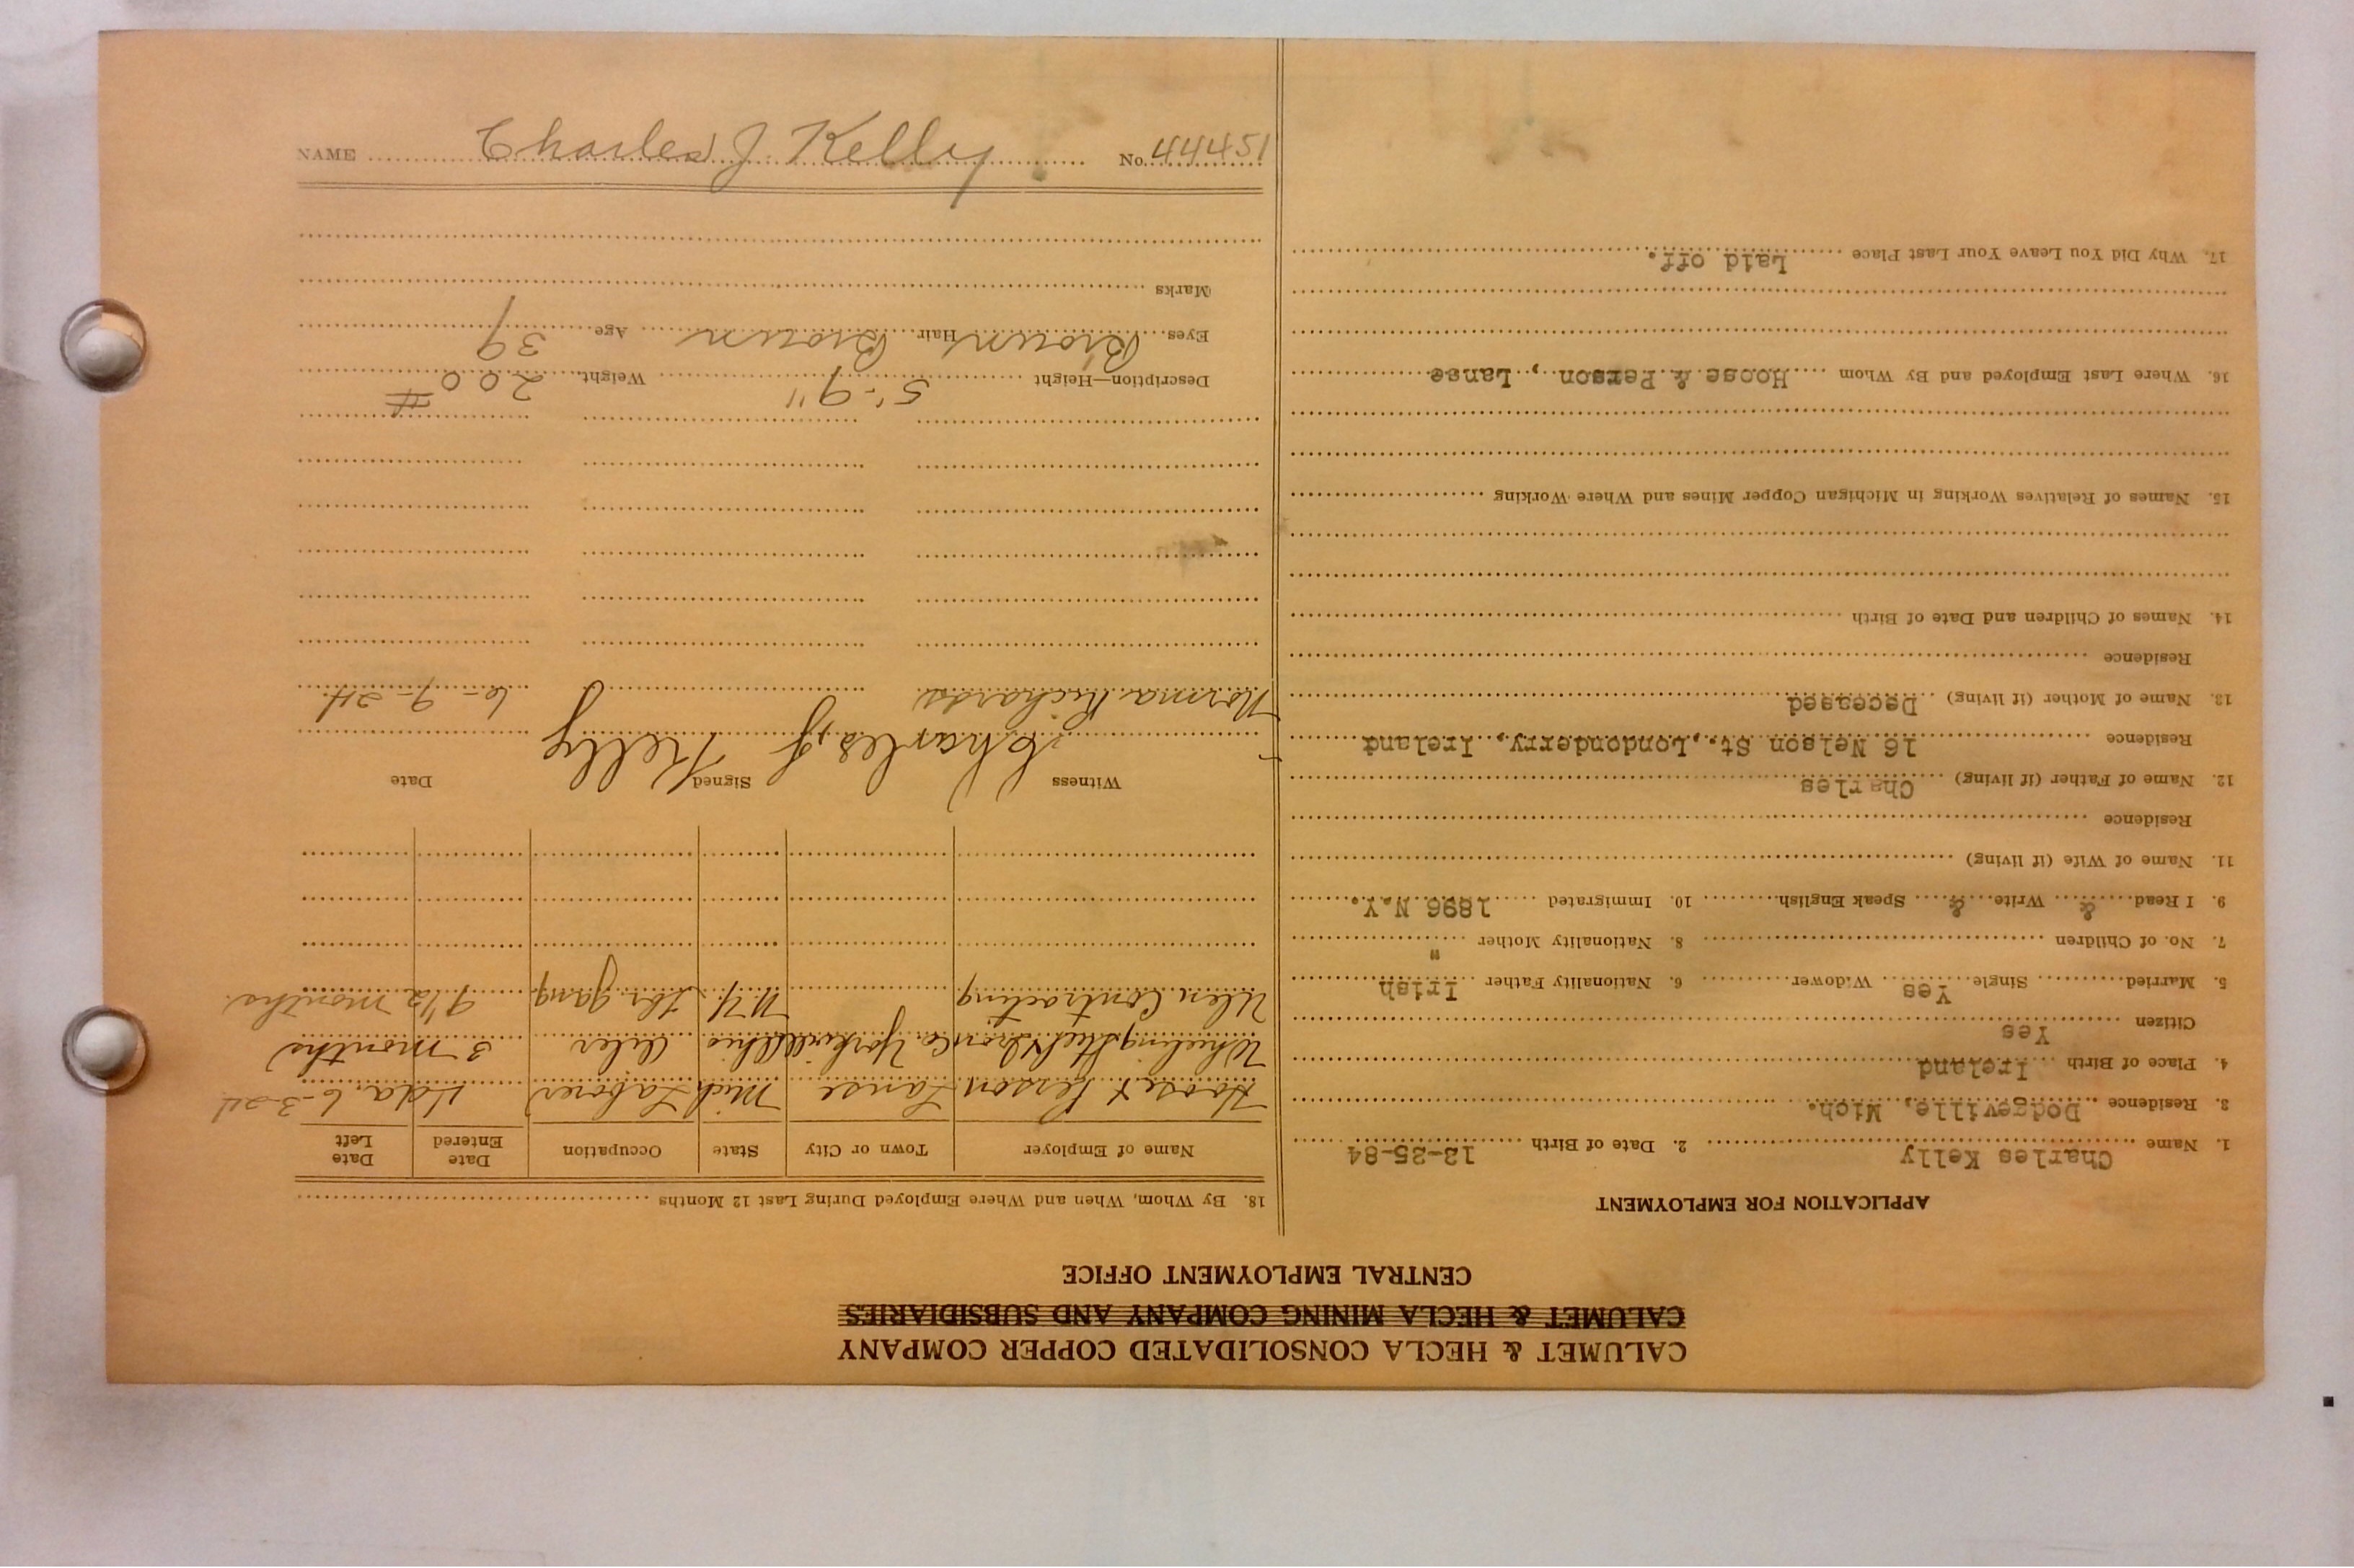 CALUMET & HECLA CONSOLIDATED COPPER COMPANY
CALUMET & HECLA MINING COMPANY AND SUBSIDIARIES
CENTRAL EMPLOYMENT OFFICE
APPLICATION FOR EMPLOYMENT
1. Name Charles Kelly 2. Date of Birth 12-25-84
3. Residence Dodgeville, Mich.
4. Place of Birth Ireland
Citizen Yes
5. Married Single Yes Widower 6. Nationality Father Irish
7. No. of Children 8. Nationality Mother "
9. I Read & Write & Speak English 10. Immigrated 1896 N.Y.
11. Name of Wife (if living)
Residence
12. Name of Father (if living) Charles
Residence 16 Nelson St., Londonderry, Ireland
13. Name of Mother (if living) Deceased
Residence
14. Names of Children and Date of Birth
15. Names of Relatives Working in Michigan Copper Mines and Where Working
16. Where Last Employed and By Whom Hoose & Person, Lanse
17. Why Did You Leave Your Last Place Laid off.
18. By Whom, When and Where Employed During Last 12 Months
Name of Employer Town or City State Occupation Date Entered Date Left
Hoose & Person Lanse Mich Laborer 1 da. 6-3-24
Wheeling Steel & Iron Co. Yorkville Ohio Oiler 3 months
Ulen Contracting N.Y. for. gang 9 1/2 months.
Witness Signed Date
Charles, J Kelly
Norma Richards 6-9-24.
Description—Height 5'-9" Weight 200 #
Eyes Brown Hair Brown Age 39
Marks
NAME Charles J. Kelly No. 44451